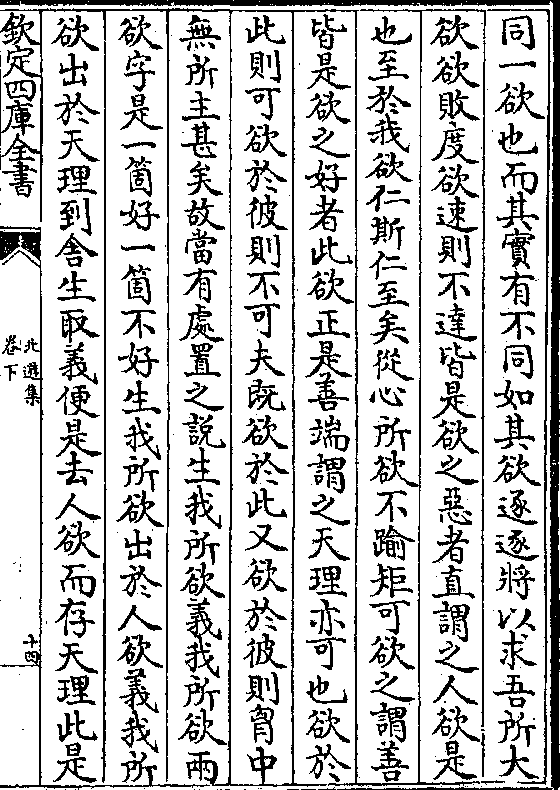 同一欲也而其實有不同如其欲逐逐將以求吾所大
欲欲敗度欲速則不達皆是欲之惡者直謂之人欲是
也至於我欲仁斯仁至矣從心所欲不踰矩可欲之謂善
皆是欲之好者此欲正是善端謂之天理亦可也欲於
此則可欲於彼則不可夫既欲於此又欲於彼則胷中
無所主甚矣故當有處置之説生我所欲義我所欲兩
欲字是一箇好一箇不好生我所欲出於人欲義我所
欲出於天理到舍生取義便是去人欲而存天理此是
欽定四庫全書
北遊集
卷下
十四